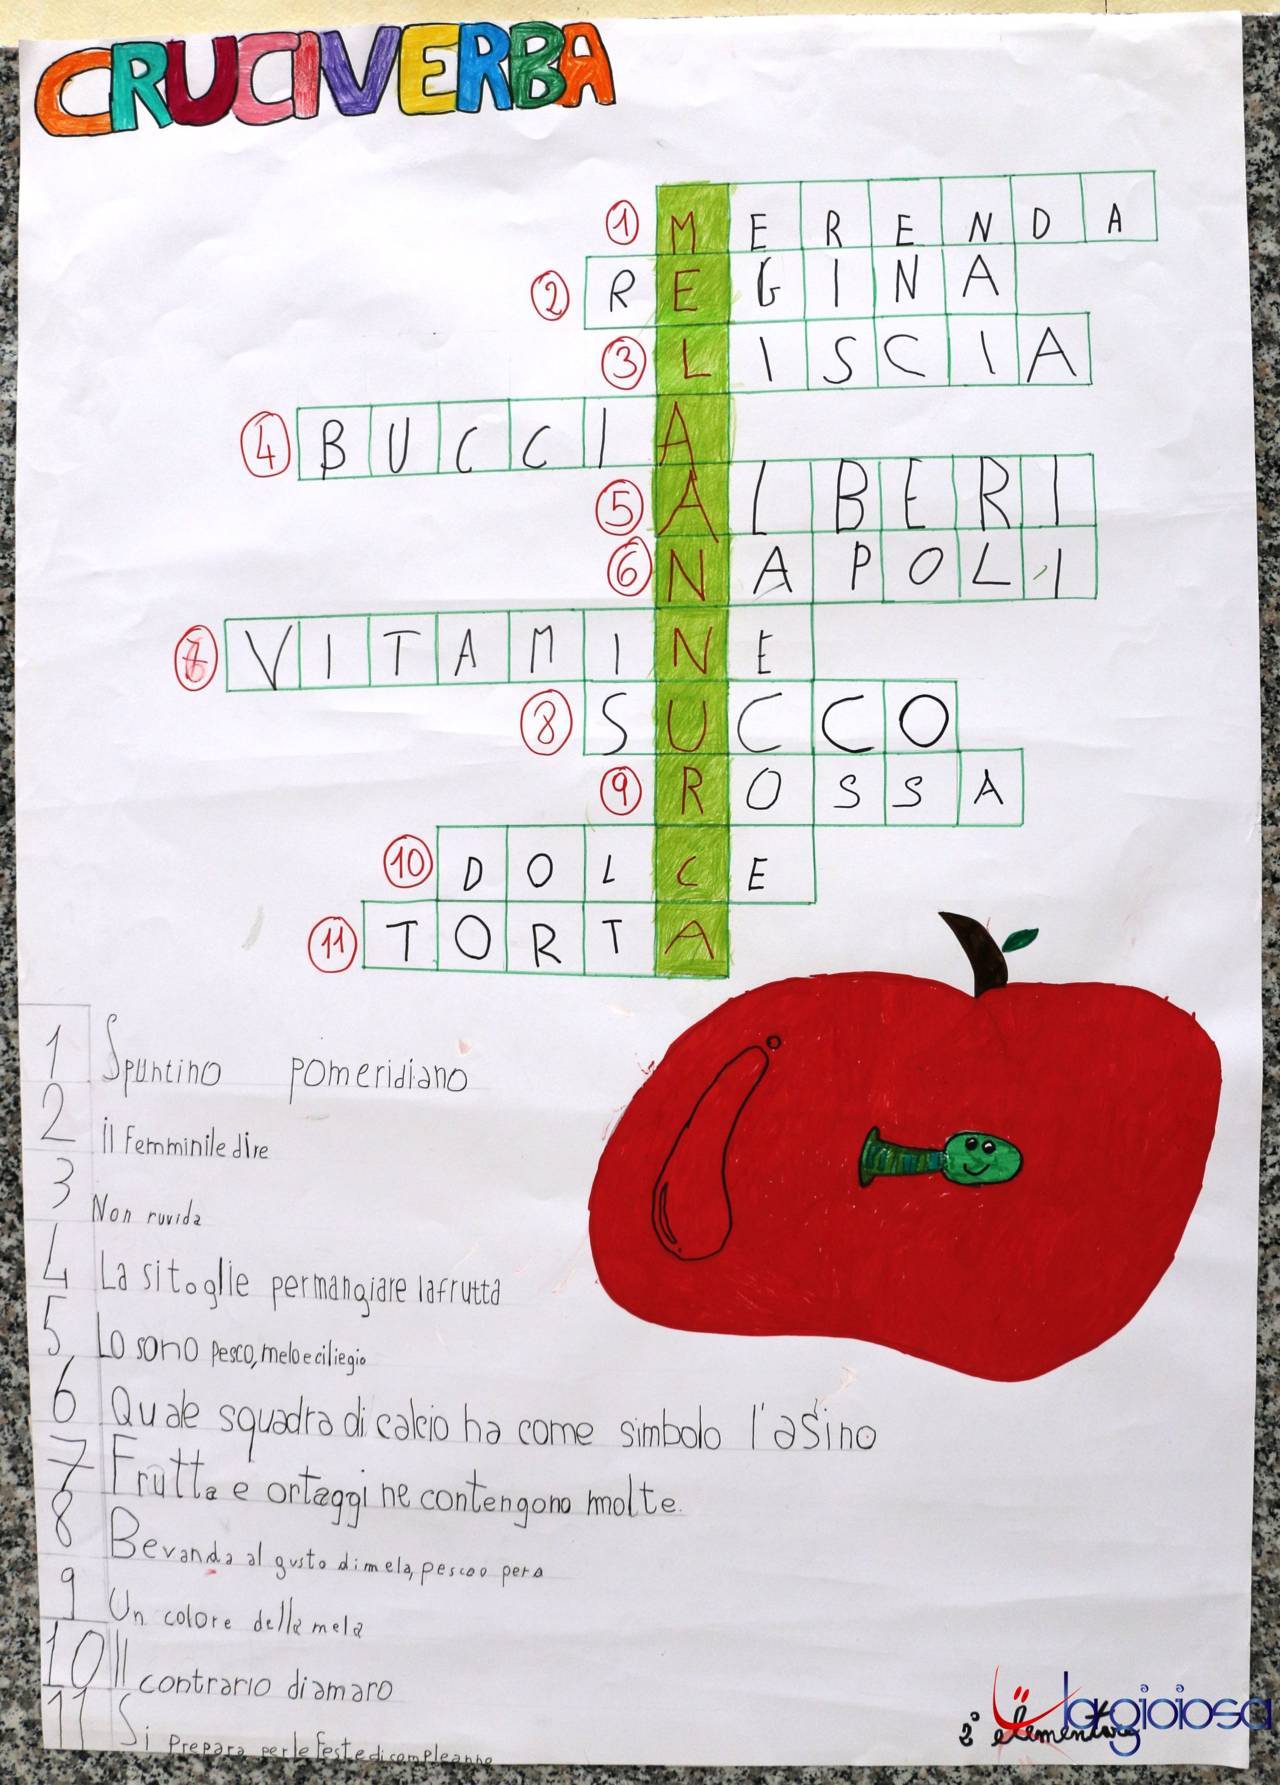 CRUCIVERBA
1 MERENDA
2 REGINA
3 LISCIA
4 BUCCIA
5 ALBERI
6 NAPOLI
7 VITAMINE
8 SUCCO
9 ROSSA
10 DOLCE
11 TORTA
1 Spuntino pomeridiano
2 il Femminile di re
3 Non ruvida
4 La si toglie per mangiare la frutta
5 Lo sono pesco, melo e ciliegio
6 Quale squadra di calcio ha come simbolo l'asino
7 Frutta e ortaggi ne contengono molte.
8 Bevanda al gusto di mela, pesca o pera
9 Un colore della mela
10 Il contrario di amaro
11 Si prepara per le feste di compleanno
lagioiosa
2° elementare